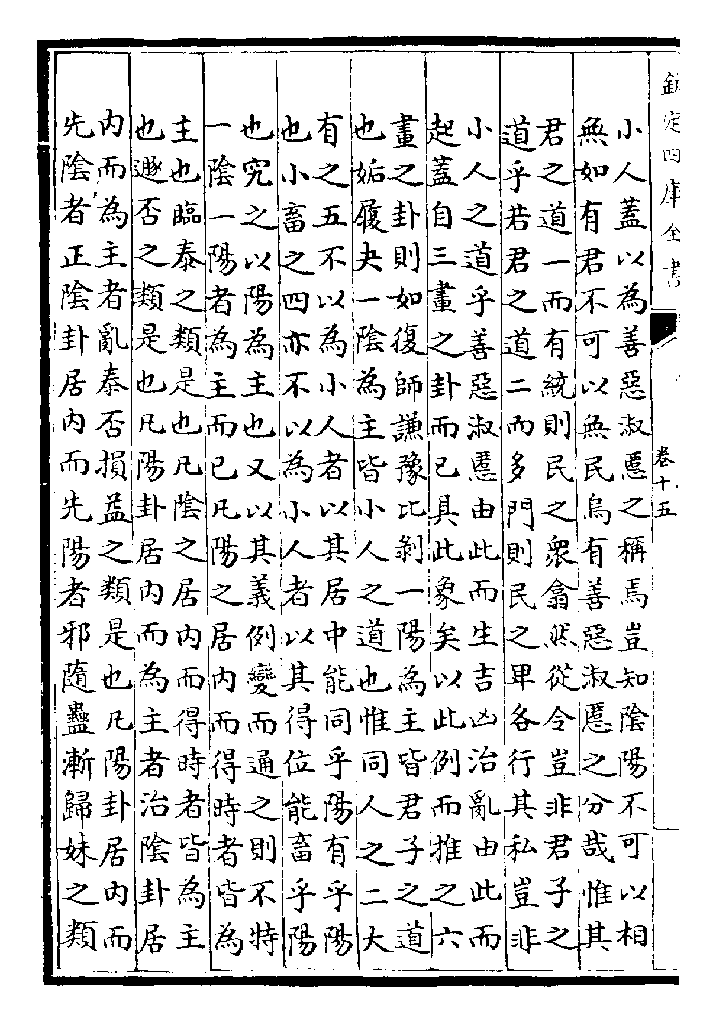 欽定四庫全書
卷十五
小人蓋以為善惡淑慝之稱焉豈知陰陽不可以相
無如有君不可以無民烏有善惡淑慝之分哉惟其
君之道一而有統則民之衆翕然從令豈非君子之
道乎若君之道二而多門則民之卑各行其私豈非
小人之道乎善惡淑慝由此而生吉凶治亂由此而
起蓋自三畫之卦而已具此象矣以此例而推之六
畫之卦則如復師謙豫比剝一陽為主皆君子之道
也姤履夬一陰為主皆小人之道也惟同人之二大
有之五不以為小人者以其居中能同乎陽有乎陽
也小畜之四亦不以為小人者以其得位能畜乎陽
也究之以陽為主也又以其義例變而通之則不特
一陰一陽者為主而已凡陽之居内而得時者皆為
主也臨泰之類是也凡陰之居内而得時者皆為主
也遯否之類是也凡陽卦居内而為主者治陰卦居
内而為主者亂泰否損益之類是也凡陽卦居内而
先陰者正陰卦居内而先陽者邪隨蠱漸歸妹之類